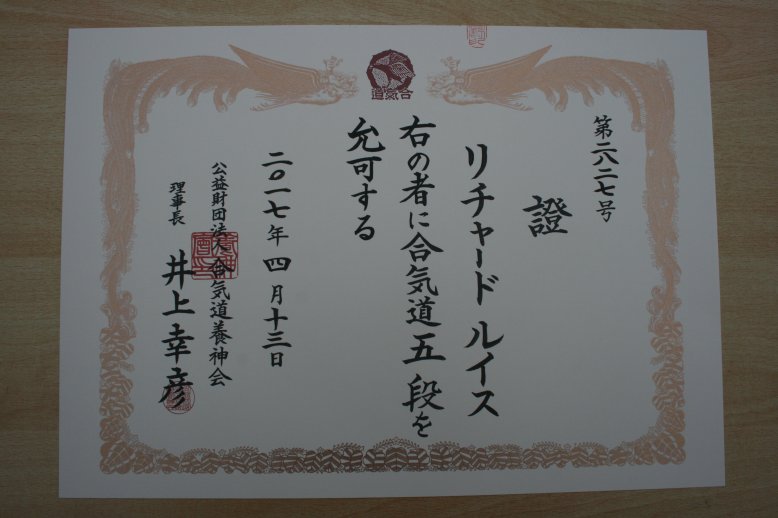 合氣道
第二八二七号
證
リチャード ルイス
右の者に合気道五段を
允可する
二〇一七年四月十三日
公益財団法人合気道養神会
理事長 井上幸彦